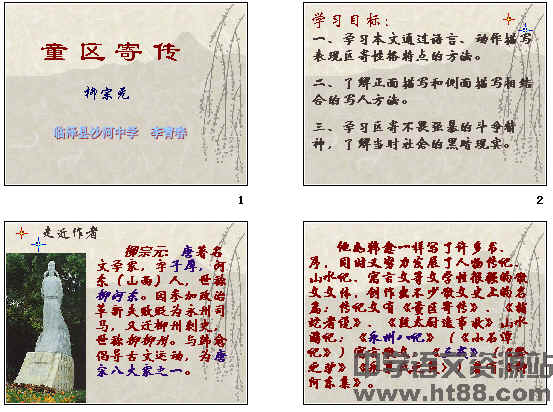 童区寄传
柳宗元
临泽县沙河中学 李青春
1
学习目标:
一、学习本文通过语言、动作描写
表现区寄性格特点的方法。
二、了解正面描写和侧面描写相结
合的写人方法。
三、学习区寄不畏强暴的斗争精
神,了解当时社会的黑暗现实。
2
走近作者
柳宗元:唐著名
文学家,字子厚,河
东(山西)人,世称
柳河东。因参加政治
革新失败贬为永州司
马,又迁柳州刺史,
世称柳柳州。与韩愈
倡导古文运动,为唐
宋八大家之一。
他和韩愈一样写了许多书、
序,同时又努力发展了人物传记、
山水记、寓言文等文学性很强的散
文文体,创作出不少散文史上的名
篇:传记文有《童区寄传》、《捕
蛇者说》、《段太尉逸事状》山水
游记:《永州八记》(《小石潭
记》)寓言散文:《三戒》
之驴》
河东集》。
中学语文资源站
www.ht88.com